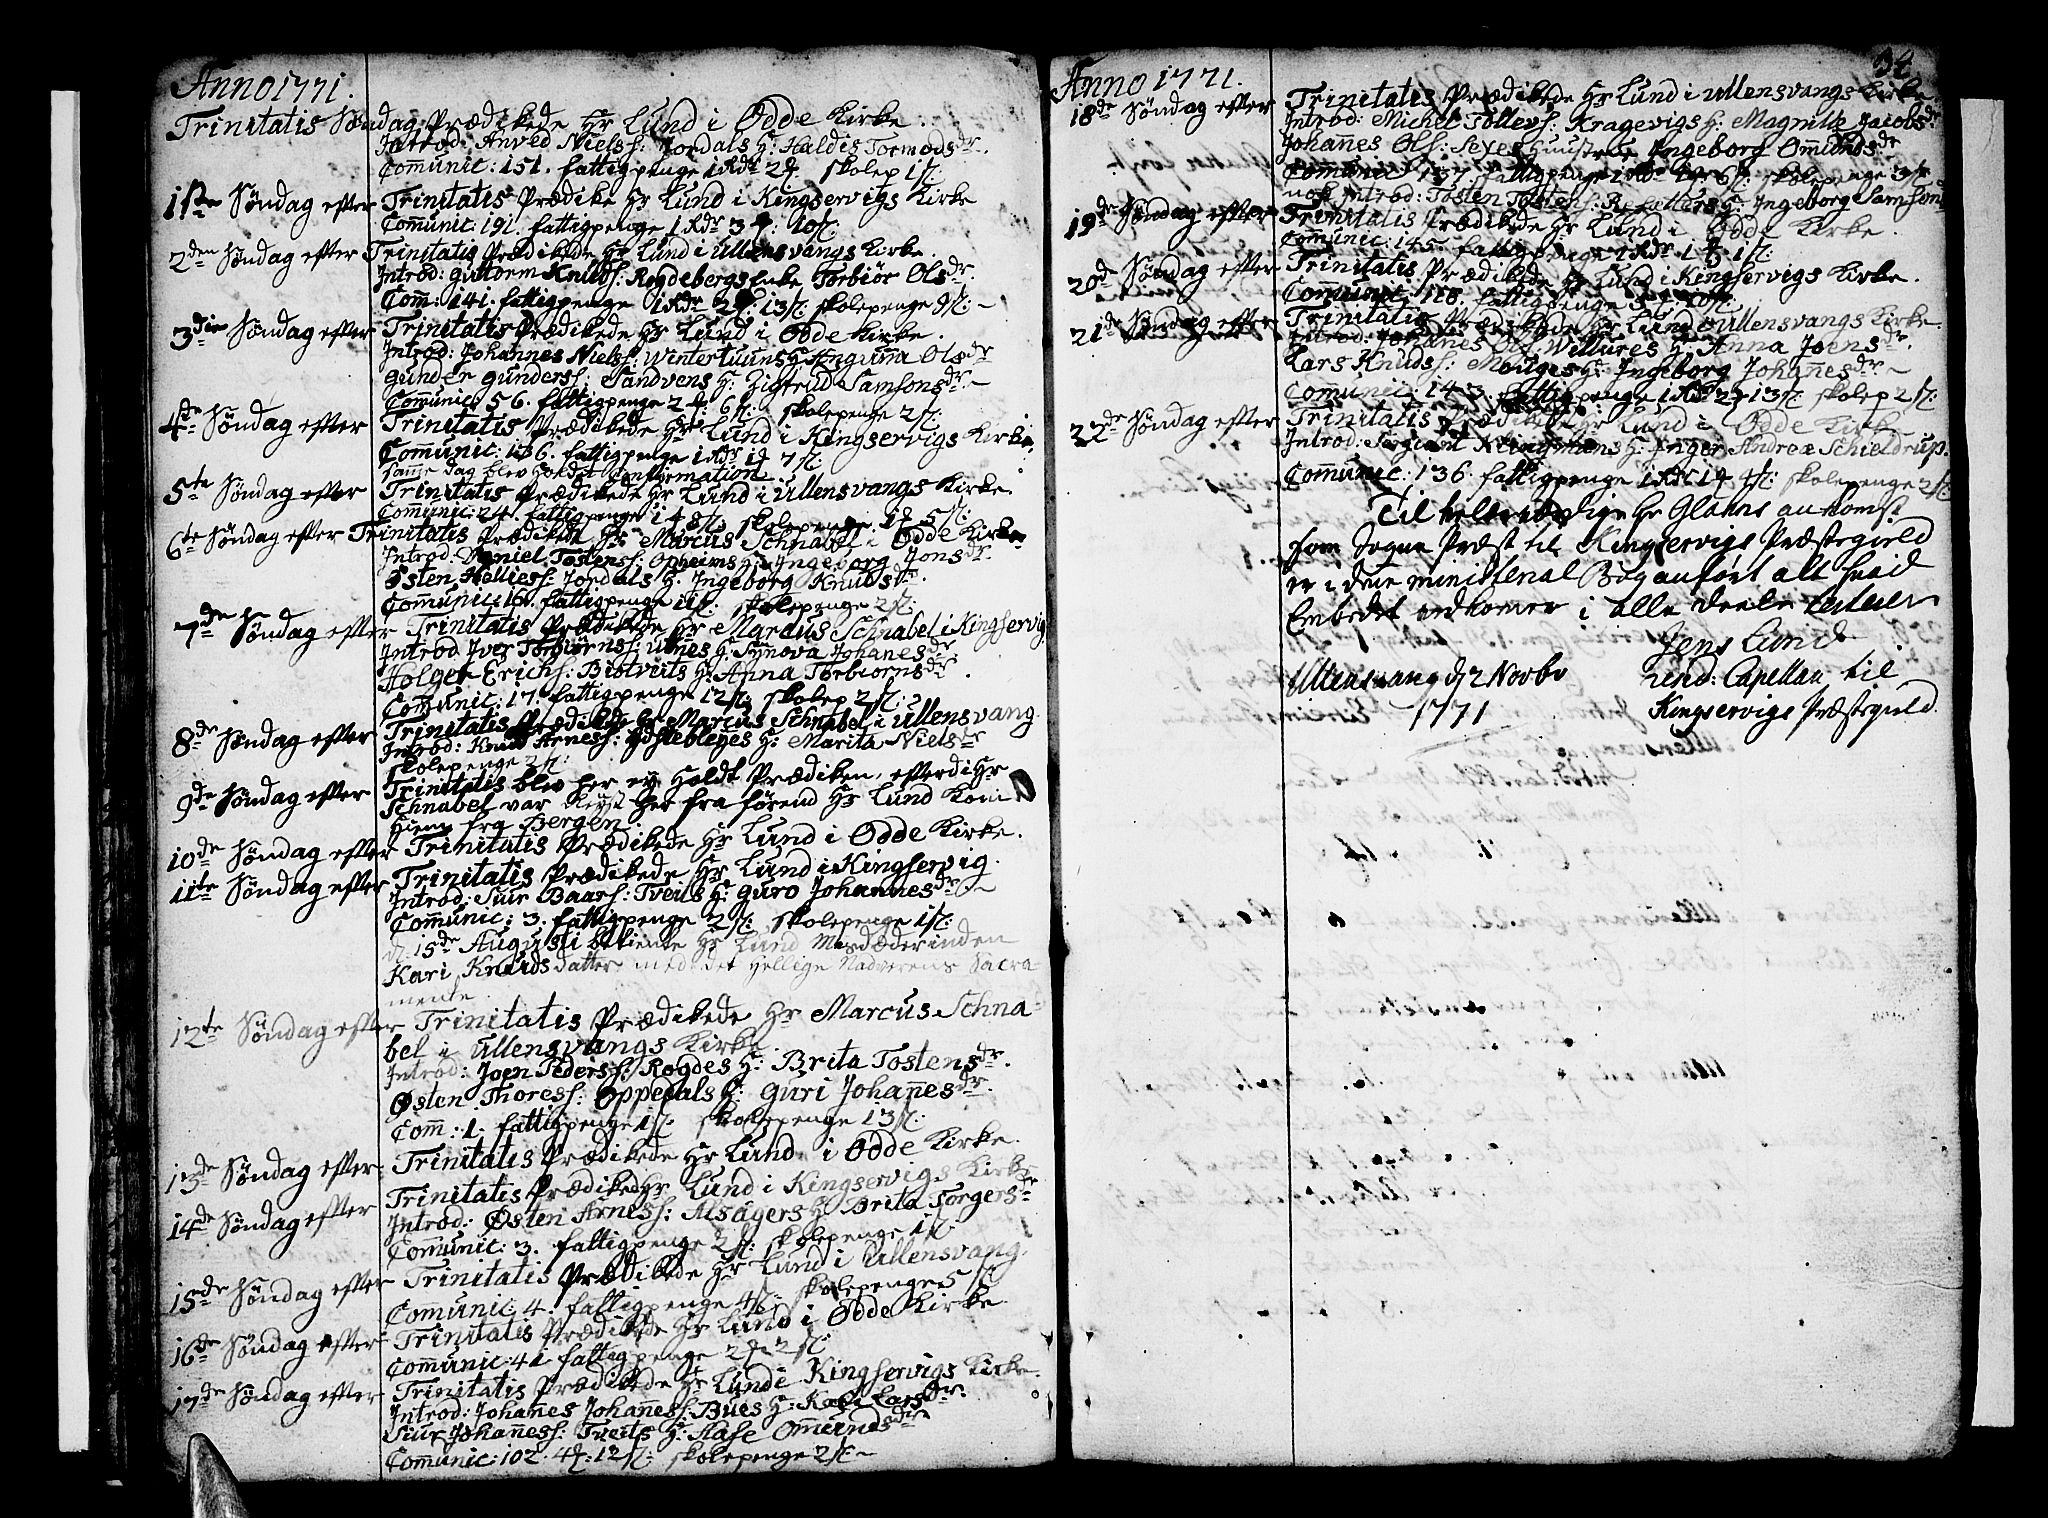 Anno 1771.
Trinitatis Søndag Prædikede Hr Lund i Odde Kirke.
Introd: Anved Nielss: Jordals H: Haldis Tormodsdr.
Comunic: 151. fattigpenge 1 Rdr 2 skolep 1 s:
1ste Søndag efter Trinitatis Prædike Hr Lund i Kingservigs Kirke
Comunic: 191. fattigpenge 1 Rdr 3 10 s:
2den Søndag efter Trinitatis Prædikede Hr Lund i Ullensvangs Kirke.
Introd: Guttorm Knuds: Rogdebergs Enke Torbiør Olsdr.
Com: 141. fattigpenge 1 Rdr 2 13 s: skolepenge 9 s:
3die Søndag efter Trinitatis Prædikede Hr Lund i Odde Kirke.
Introd: Johannes Nielss: Wintertuuns H: Anguna Olsdr
Gunder Gunderss: Sandvens H: Gistrud Samsonsdr
Comunic 56. fattigpenge 2 6 s: skolepenge 2 s:
4de Søndag efter Trinitatis Prædikede Hr Lund i Kingservigs Kirke
Comunic: 136. fattigpenge 1 Rdr 1 7 s:
samme dag blev holdet Confirmation
5te Søndag efter Trinitatis Prædikede Hr Lund i Ullensvangs Kirke.
Comunic: 24. fattigpenge 1 8 s: skolepenge. 1 5 s:
6te Søndag efter Trinitatis Prædikede Hr Marcus Schnabel i Odde Kirke
Introd: Daniel Tostens: Opheims H: Ingeborg Jonsdr.
Østen Helliess: Jordals H: Ingeborg Knudsdr.
Comunic: 16. fattigpenge 11 s: skolepenge 2 s:
7de Søndag efter Trinitatis Prædikede Hr Marcus Schnabel i Kingservig
Introd Iver Torbiørns: Utnes H: Synova Johanesdr
Holget Erichs: Bistveits H: Anna Torbiørnsdr.
Comunic: 17. fattigpenge 12 s: skolep 2 s:
8de Søndag efter Trinitatis Prædikede Hr Marcus Schnabel i Ullensvang.
Introd: Knud Arness: H: Marita Nielsdr
skolepenge 2 s:
9de Søndag efter Trinitatis blev her ey Holdt Prædiken, efterdi Hr
Schnabel var Reyst her fra førend Hr Lund kom
Hiem fra Bergen.
10de Søndag efter Trinitatis Prædikede Hr Lund i Odde Kirke.
11te Søndag efter Trinitatis Prædikede Hr Lund i Kingservig.
Introd: Siur Baars: Tveits H: Guro Johannesdr
Comunic: 3. fattigpenge 2 s: skolepenge 1 s:
d. 15de Augusti betiente Hr Lund Misdæderinden
Kari Knudsdatter med det Hellige Nadverens Sacra-
mente.
12te Søndag efter Trinitatis Prædikede Hr Marcus Schna-
bel i Ullensvangs Kirke.
Introd: Joen Peders: Rogdes H: Brita Tostensdr.
Østen Thoress: Oppedals H: Guri Johanesdr.
Com: 1. fattigpenge 1 s: skolepenge 13 s:
13de Søndag efter Trinitatis Prædikede Hr Lund i Odde Kirke.
14de Søndag efter Trinitatis Prædikede Hr Lund i Kingservigs Kirke
Introd: Østen Arness: Alsagers H: Brita Torgersdr
Comunic: 3. fattigpenge 2 s: skolepenge 1 s:
15de Søndag efter Trinitatis Prædikede Hr Lund i Ullensvang.
Comunic: 4. fattigpenge 4 s: skolepenge 5 s:
16de Søndag efter Trinitatis Prædikede Hr Lund i Odde Kirke.
Comunic: 41 fattigpenge 2 2 s:
17de Søndag efter Trinitatis Prædikede Hr Lund i Kingservigs Kirke.
Introd: Johanes Johaness: Bues H: Kari Larsdr.
Siur Johaness: Tveits H: Aase Omundsdr
Comunic: 102. 4 12 s: skolepenge 2 s:
34
Anno 1771.
18de Søndag efter Trinitatis Prædikede Hr Lund i Ullensvangs Kirke
Introd: Michel Tollevs: Kragevigs H: Magnild Jacobsdr
Johanes Ols: Sexes Huustrue Ingeborg Omundsdr
Comunic: 137. fattigpenge 1 Rdr 1 6 s: skolepenge 3
nok Introd: Tosten Tostens: H: Ingeborg Samsonsdr
19de Søndag efter Trinitatis Prædikede Hr Lund i Odde Kirke.
Comunic: 145. fattigpenge 1 Rdr 1 1 s:
20de Søndag efter Trinitatis Prædikede Hr Lund i Kingservigs Kirke.
Comunic 118. fattigpenge 5 10 s:
21de Søndag efter Trinitatis Prædikede Hr Lund i Ullensvangs Kirke.
Introd: Johanes Ols: Willures H: Anna Joensdr.
Lars Knuds: Mauges H: Ingeborg Johanesdr
Comunic 143. fattigpenge 1 Rdr 2 13 s: skolep 2 s:
22de Søndag efter Trinitatis Prædikede Hr Lund i Odde Kirke
Introd: Sergiant Klingmans H: Inger Andrea Schieldrup.
Comunic: 136. fattigpenge 1 Rdr 1 4 s: skolepenge 2 s:
Til velærværdige Hr Glahns ankomst
som Sogne Præst til Kingservigs Præstegield
er i dene ministerial Bog anført alt hvad
Embedet vedkomer i alle deele
Jens Lund
Ullensvang d. 2 Novbr
1771
Capellan til
Kingservigs Præstegield.